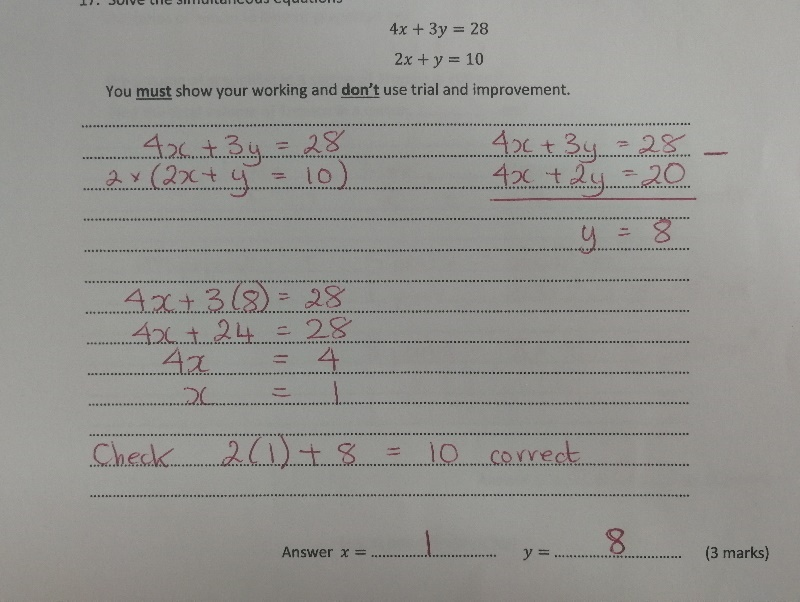 17. Solve the simultaneous equations
4x + 3y = 28
2x + y = 10
You must show your working and don't use trial and improvement.
4x + 3y = 28
2 × (2x + y = 10)
4x + 3y = 28 —
4x + 2y = 20
y = 8
4x + 3(8) = 28
4x + 24 = 28
4x = 4
x = 1
Check 2(1) + 8 = 10 correct
Answer x = 1 y = 8 (3 marks)